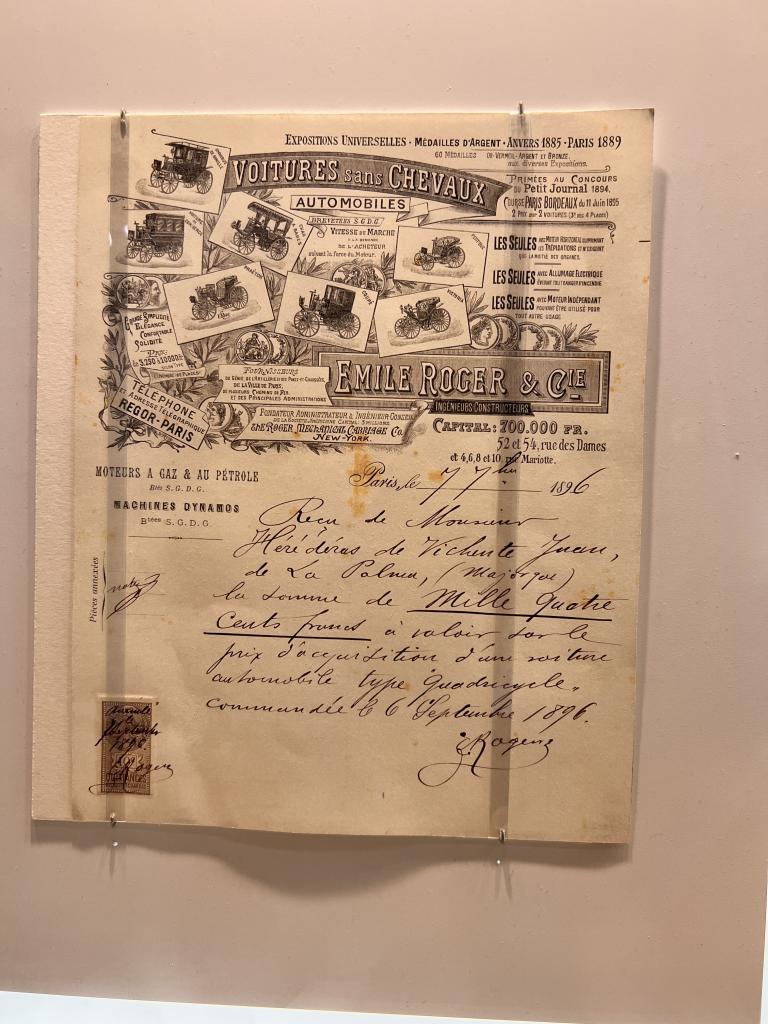 Expositions Universelles - Médailles d'Argent - Anvers 1885 - Paris 1889
60 Médailles Or-Vermeil-Argent et Bronze.
aux diverses Expositions.
Voitures sans Chevaux
Automobiles
Brevetées S.G.D.G.
Primées au Concours
du Petit Journal 1894.
Course Paris Bordeaux du 11 Juin 1895
2 Prix pour 2 Voitures (3es des 4 Places)
Vitesse de Marche
à la demande
de l'Acheteur
suivant la force du Moteur.
Les Seules avec Moteur Horizontal supprimant
les Trépidations et n'exigeant
que la moitié des organes.
Les Seules avec Allumage Electrique
évitant tout danger d'incendie
Les Seules avec Moteur Indépendant
pouvant être utilisé pour
tout autre usage
Grande Simplicité
Elégance
Confortable
Solidité
Prix:
de 3.250 à 10000 fr
Téléphone
Adresse Télégraphique
Regor-Paris
Fournisseurs
du Génie de l'Artillerie et des Ponts et Chaussées,
de la Ville de Paris,
de plusieurs Chemins de Fer,
et des Principales Administrations
Emile Roger & Cie
Ingénieurs Constructeurs
Fondateur Administrateur & Ingénieur Conseil
de la Société Américaine Capital: 5 millions
The Roger Mechanical Carriage Co.
New-York.
Capital: 700.000 fr.
52 et 54, rue des Dames
et 4,6,8 et 10, rue Mariotte.
Moteurs a Gaz & au Pétrole
Btés S.G.D.G.
Machines Dynamos
Btées S.G.D.G.
Paris, le 7 7bre 1896
Reçu de Monsieur
Hérédéras de Vichente Juan,
de La Palma, (Majorque)
la somme de Mille Quatre
Cents francs à valoir sur le
prix d'acquisition d'une voiture
automobile type Quadricycle,
commandée le 6 Septembre 1896.
E. Rogerre
Pièces annexées
Septembre
1896
10c
Quittances